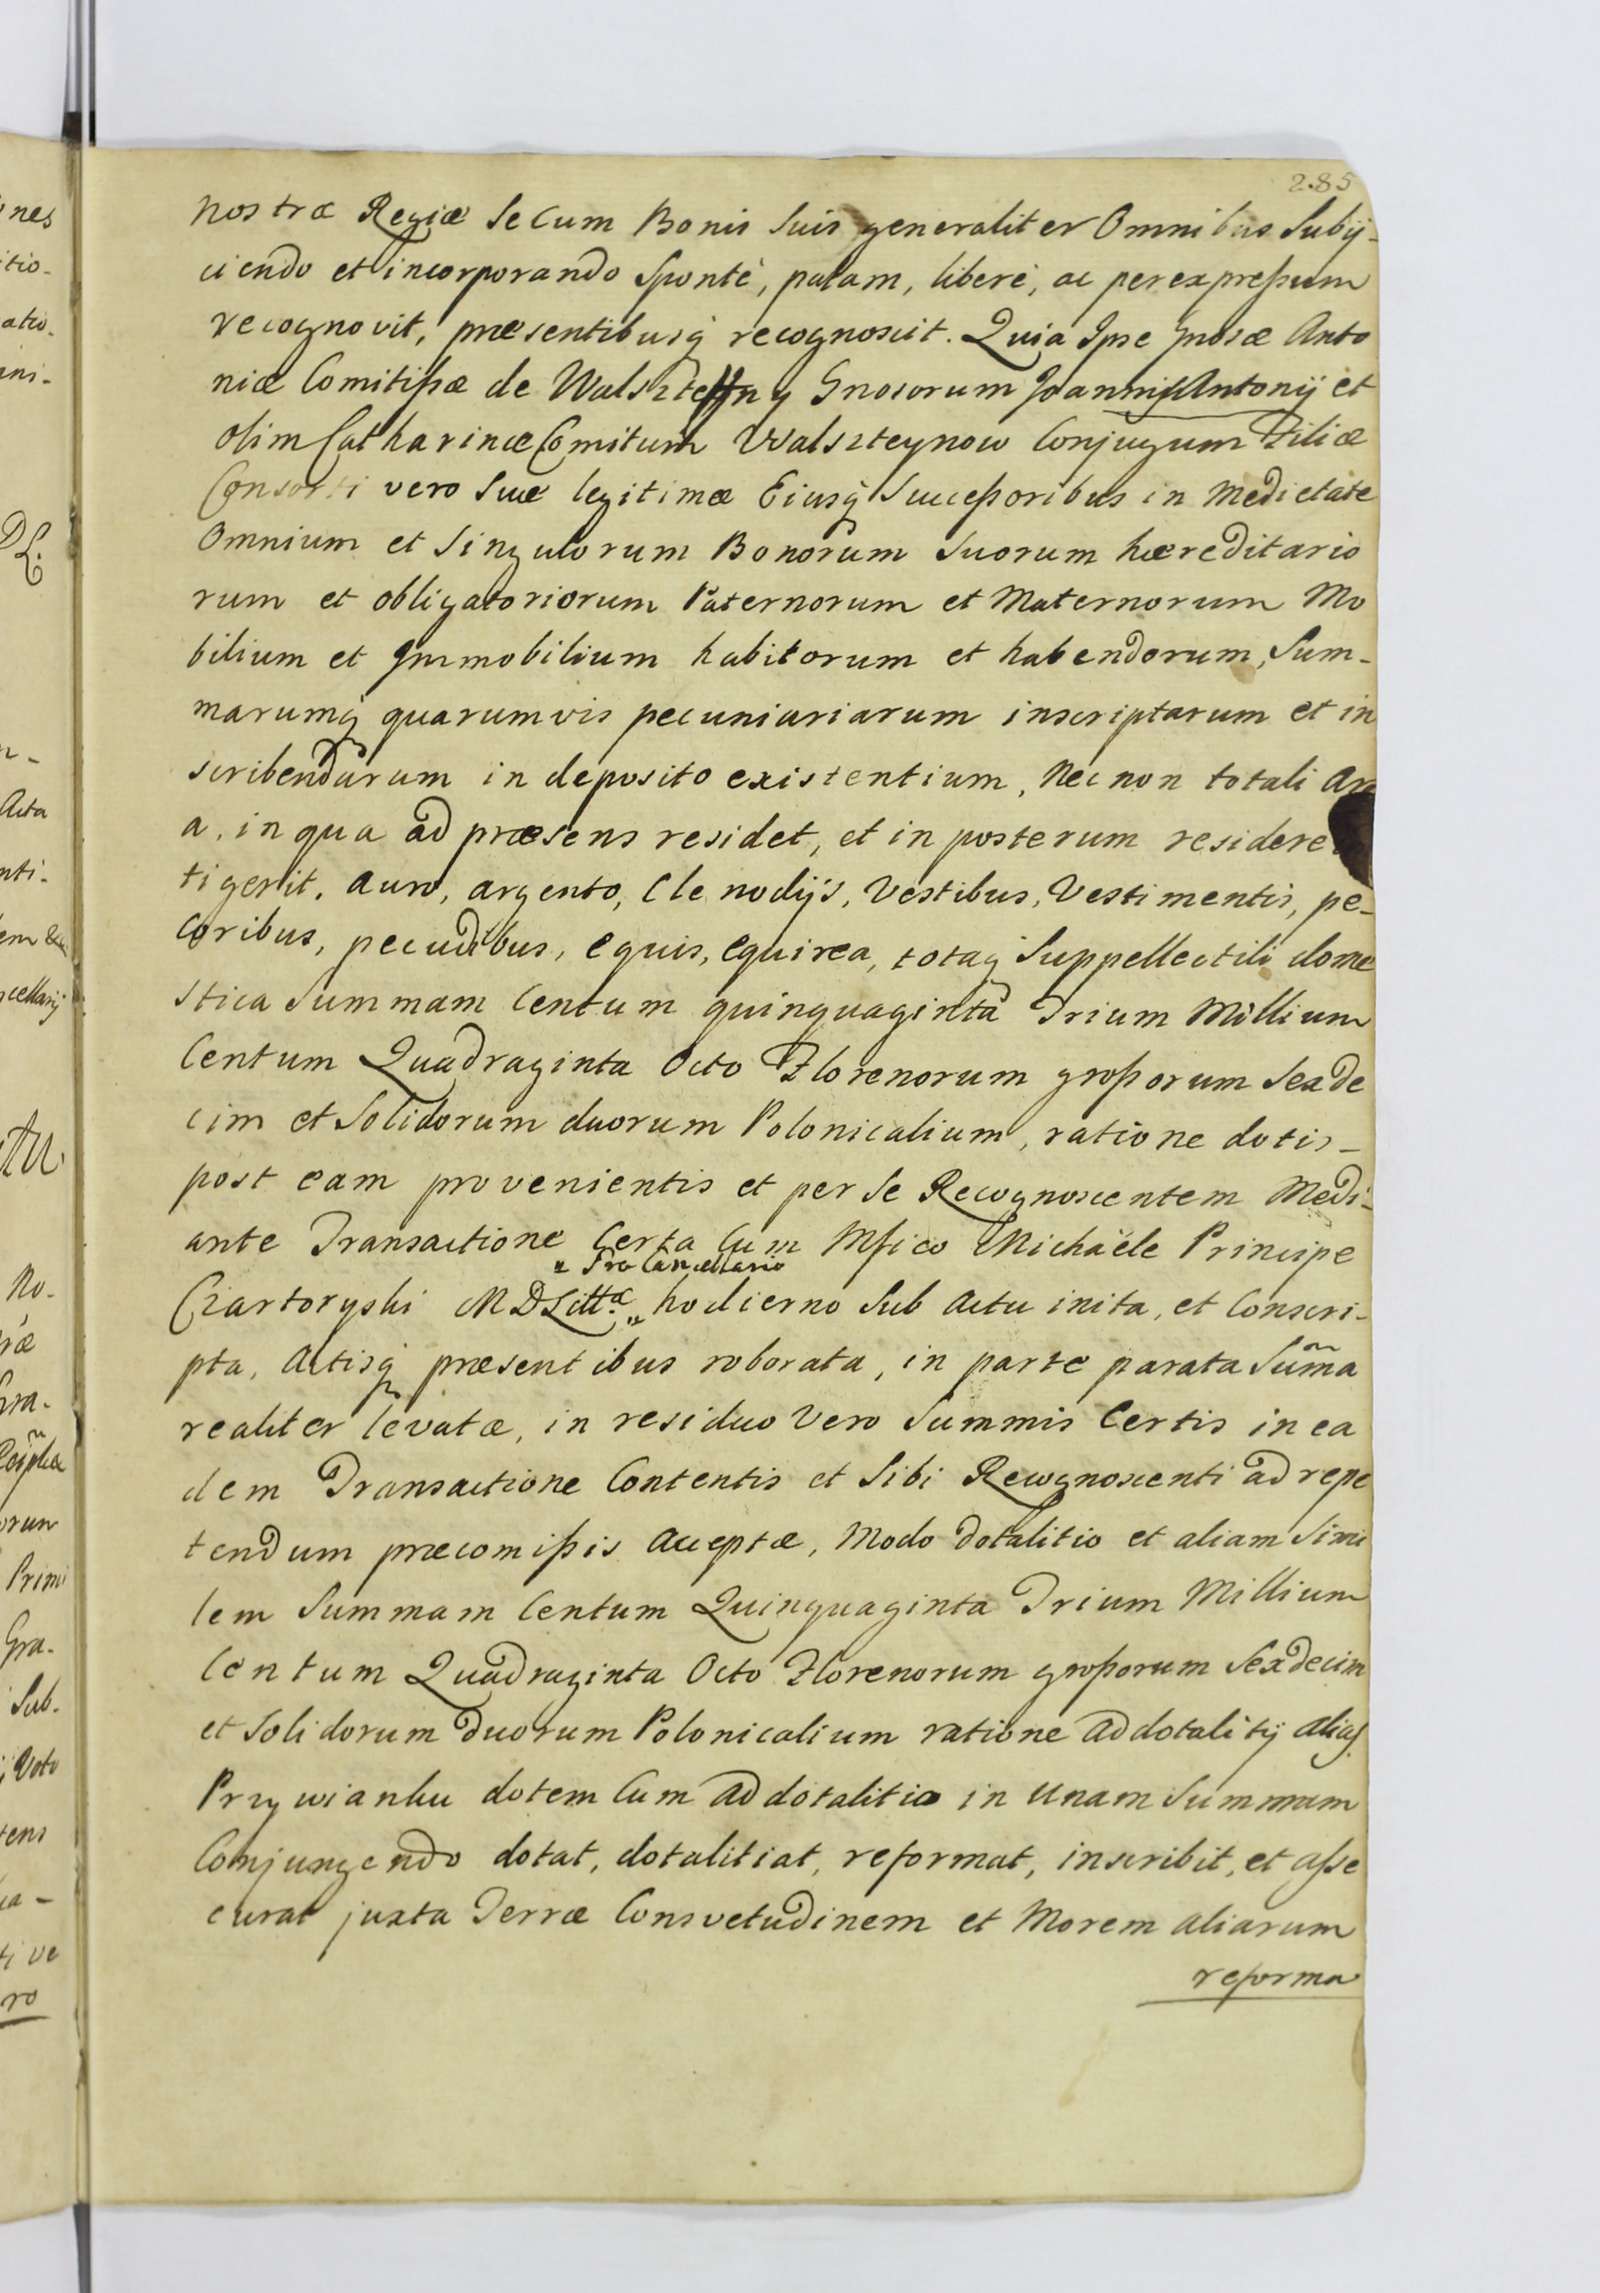 285
nostræ Regiæ se cum Bonis suis generaliter Omnibus Subij-
ciendo et incorporando spontè, palam, liberè, ac per expressum
recognovit, præsentibusq recognoscit. Quia Ipse Gnosæ Anto
niæ Comitissæ de Walszteyn y Gnosorum Joannis Antonij et
olim Catharinæ Comitum Walszteynow Conjugum Filiæ
Consorti vero suæ legitimæ Eiusq Successoribus in Medietate
Omnium et Singulorum Bonorum Suorum hæreditario
rum et obligatoriorum Paternorum et Maternorum Mo
bilium et Immobilium habitorum et habendorum, Sum-
marumq quarumvis pecuniariarum inscriptarum et in
scribendarum in deposito existentium, Nec non totali
a, in qua ad præsens residet, et in posterum residere
tigerit, auro, argento, Clenodijs, Vestibus, Vestimentis, pe-
coribus, pecudibus, equis, equirea, totaq Suppellectili dome
stica Summam Centum quinquaginta Trium Millium
Centum Quadraginta Octo Florenorum grossorum Sexde
cim et Solidorum duorum Polonicalium, ratione dotis-
post eam provenientis et per se Recognoscentem Medi-
ante Transactione Certa Cum Mfico Michaële Principe
" Pro Cancellario
Czartoryski M D Litt. " hodierno Sub actu inita, et Conscri-
pta, Actisq præsentibus roborata, in parte parata Sum̃a
realiter levatæ, in residuo Vero Summis Certis in ea
dem Transactione Contentis et Sibi Recognoscenti ad repe
tendum præcomissis acceptæ, Modo dotalitio et aliam Simi
lem Summam Centum Quinquaginta Trium Millium
Centum Quadraginta Octo Florenorum grossorum Sexdecim
et Solidorum duorum Polonicalium ratione addotalitij alias
Przywianku dotem Cum addotalitio in Unam Summam
Conjungendo dotat, dotalitiat, reformat, inscribit, et asse
curat juxta Terræ Consvetudinem et Morem aliarum
reforma